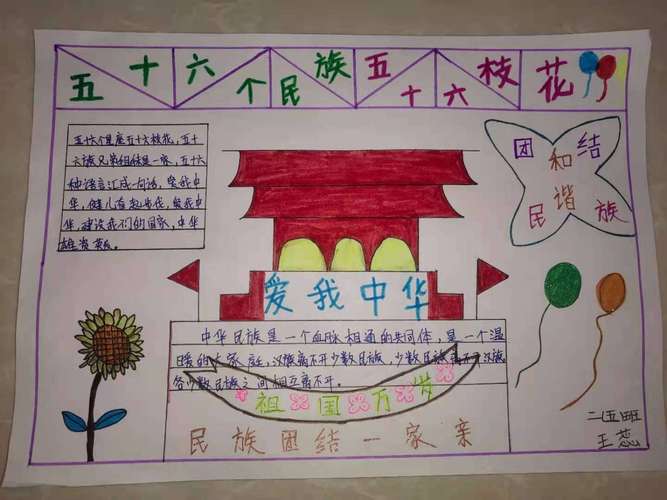 五十六个民族五十六枝花
五十六个星座五十六枝花,五十
六族兄弟姐妹是一家,五十六
种语言汇成一句话,爱我中
华,健儿奋起步伐,爱我中
华,建设我们的国家,中华
雄姿英发。
团和结
民谐族
爱我中华
中华民族是一个血脉相通的共同体,是一个温
暖的大家庭,汉族离不开少数民族,少数民族离不开汉族
各少数民族之间相互离不开。
祖国万岁
民族团结一家亲
二(五)班
王蕊